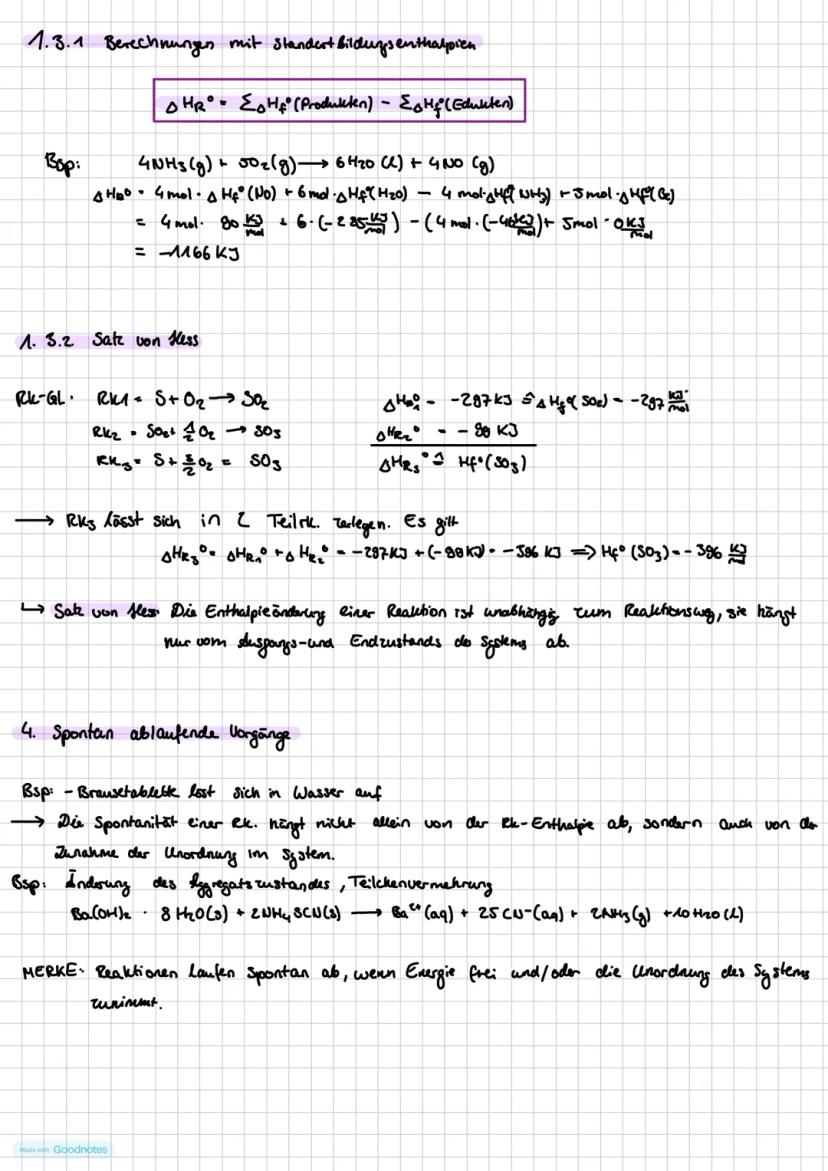 1.3.1 Berechnungen mit Standertbildungsenthalpien
ΔHR° = ΣΔHf°(Produkten) - ΣΔHf°(Edukten)
Bsp: 4NH3(g) + 5O2(g) ⟶ 6H2O (l) + 4NO (g)
ΔHR° = 4mol · ΔHf°(No) + 6mol·ΔHf°(H2O) - 4 mol·ΔHf°(NH3) + 5mol·ΔHf°(O2)
= 4mol · 90 KJ/mol + 6·(-285 KJ/mol) - (4mol·(-46 KJ/mol) + 5mol · 0 KJ/mol
= -1166 KJ
1.3.2 Satz von Hess
RK-GL: RK1 = S + O2 ⟶ SO2 ΔHR1° = -297KJ ≙ ΔHf°(SO2) = -297 KJ/mol
RK2 = SO2 + 1/2 O2 → SO3 ΔHR2° = -99 KJ
RK3 = S + 3/2 O2 = SO3 ΔHR3° ≙ Hf°(SO3)
⟶ RK3 lässt sich in 2 Teilrk. zerlegen. Es gilt
ΔHR3° = ΔHR1° + ΔHR2° = -297KJ + (-99KJ) = -396 KJ ⇒ Hf° (SO3) = -396 KJ/mol
↳ Satz von Hess: Die Enthalpieänderung einer Reaktion ist unabhängig zum Reaktionsweg, sie hängt
nur vom Ausgangs- und Endzustands des Systems ab.
4. Spontan ablaufende Vorgänge
Bsp: - Brausetablette löst sich in Wasser auf
⟶ Die Spontanität einer Rk. hängt nicht allein von der Rk-Enthalpie ab, sondern auch von der
Zunahme der Unordnung im System.
Bsp: Änderung des Aggregatszustandes, Teilchenvermehrung
Ba(OH)2 · 8 H2O(s) + 2NH4SCN(s) ⟶ Ba2+ (aq) + 2SCN-(aq) + 2NH3(g) + 10 H2O (l)
MERKE: Reaktionen laufen spontan ab, wenn Energie frei und/oder die Unordnung des Systems
zunimmt.
Made with Goodnotes